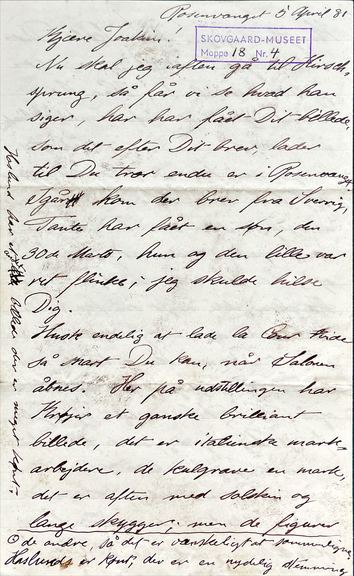 Rosenvænget 5 April 81
SKOVGAARD-MUSEET
Mappe 18 Nr. 4
Kjære Joakim!
Nu skal jeg i aften gå til Hirsch-
sprung, så får vi se hvad han
siger, har han fået Dit billede,
som det efter Dit brev lader
til Du tror endnu er i Rosenvænget
Igår kom der brev fra Sverrig,
Tante har fået en søn, den
30de Marts, hun og den lille var
ret flinke; jeg skulde hilse
Dig.
Huske endelig at lade la Cour finde
så snart Du kan, når Salonen
åbnes. Her på udstillingen har
Krøyer et ganske brilliant
billede, det er italienske mark-
arbejdere, de kulgrave en mark,
det er aften med solskin og
lange skygger; men de figurer
de andre, så det er vanskeligt at sammenligne
Haslunds er kønt, der er en nydelig stemning
Haslund har også billede der er meget kønt;